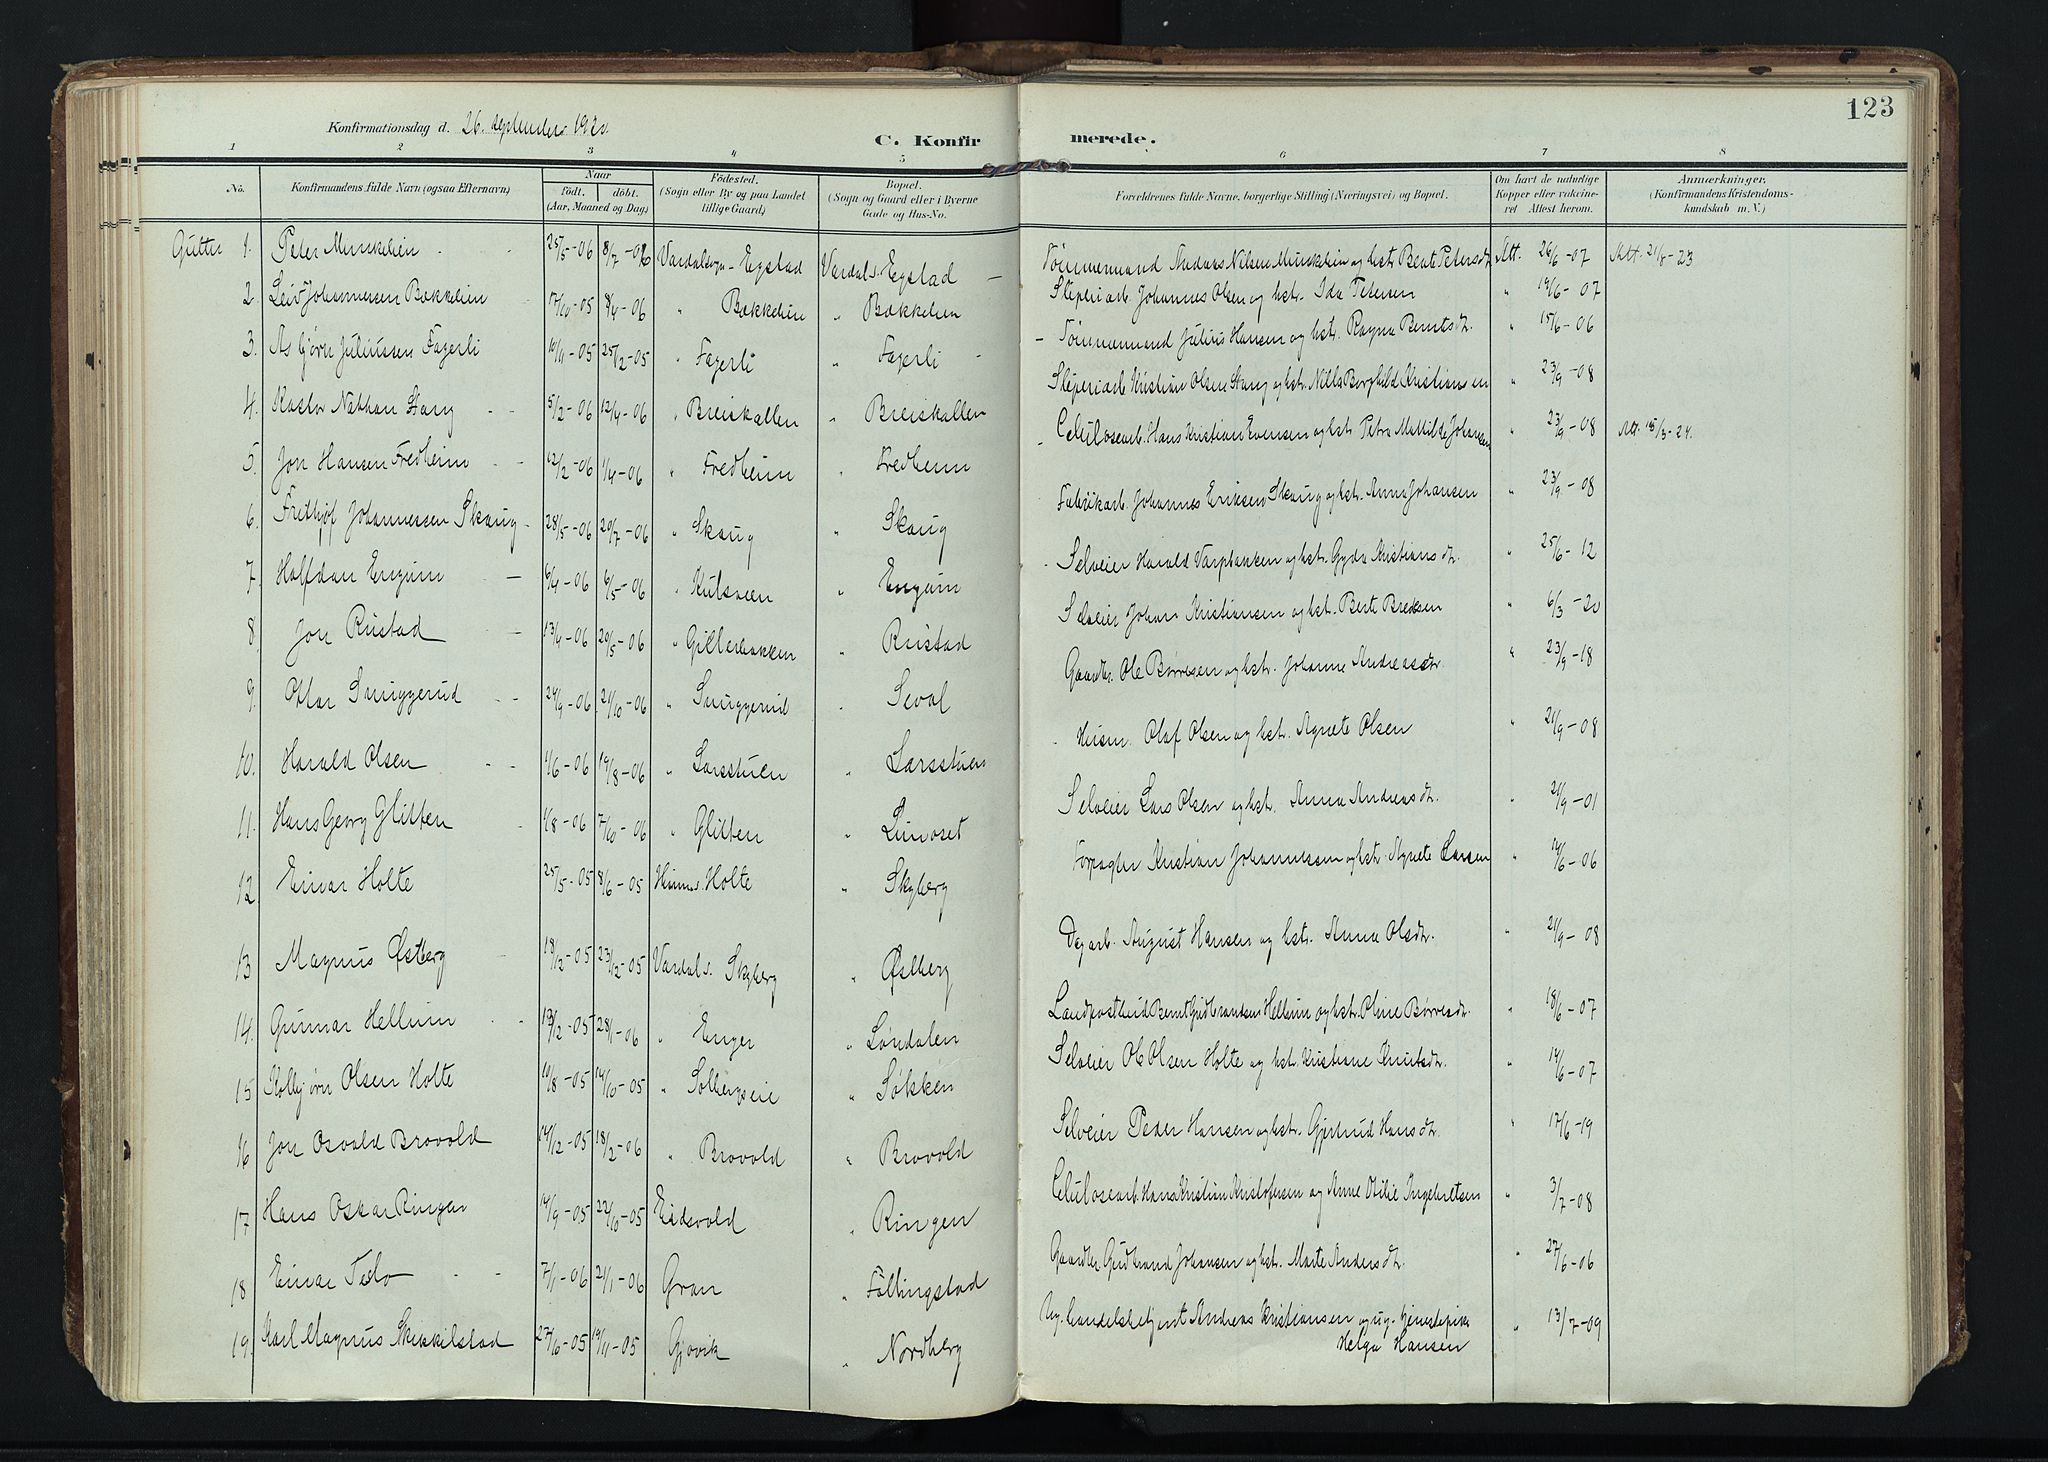 123
Konfirmationsdag d. 26. september 1920.
C. Konfirmerede.
1 2 3 4 5 6 7 8
No. Konfirmandens fulde Navn (ogsaa Efternavn) Naar født. døbt. (Aar, Maaned og Dag) Fødested. (Sogn eller By og paa Landet tillige Gaard) Bopæl. (Sogn og Gaard eller i Byerne Gade- og Hus-No. Forældrenes fulde Navne, borgerlige Stilling (Næringsvei) og Bopæl. Om havt de naturlige Kopper eller vakcineret Attest herom. Anmærkninger. (Konfirmandens Kristendomskundskab m. V.)
Gutter 1. Peter Munkelien 25/5-06 8/7-06 Vardalsogn Egstad Vardal s. Egstad Tømmermand Andreas Nilsen Munkelien og hst. Berte Petersdtr. Att. 26/6-07 Att. 21/8-23
2. Leiv Johannessen Bækkelien 17/10-05 8/4-06 " Bækkelien " Bækkelien Sliperiarb. Johannes Olsen og hst. Ida Petersen " 19/6-07
3. Asbjørn Juliussen Fagerli 10/11-05 25/12-05 " Fagerli " Fagerli Tømmermand Julius Hansen og hst. Ragna Berntsdtr. " 15/6-06
4. Kastor Nathan Stang 5/2-06 12/4-06 " Breiskallen " Breiskallen Sliperiarb. Kristian Olsen Stang og hst. Nilla Borghild Kristiansen " 23/9-08
5. Jon Hansen Fredheim 12/2-06 1/4-06 " Fredheim " Fredheim Celulosearb. Hans Kristian Evensen og hst. Petra Mathilde Johansen " 23/9-08 Att. 15/3-24.
6. Frithjof Johannessen Skaug 28/5-06 20/7-06 " Skaug " Skaug Fabrikarb. Johannes Eriksen Skaug og hst. Anna Johansen " 23/9-08
7. Halfdan Engum 6/4-06 6/5-06 " Kulsveen " Engum Selveier Harald Varpbakken og hst. Gyda Kristiansdtr. " 25/6-12
8. Jon Rustad 13/4-06 20/5-06 " Gillerbakken " Rustad Selveier Johan Kristiansen og hst. Berte Bredesen " 6/3-20
9. Ottar Snuggerud 24/9-06 21/10-06 " Snuggerud " Seval Gaardbr. Ole Børresen og hst. Johanne Andreasdtr. " 23/9-18
10. Harald Olsen 1/6-06 19/8-06 " Larsstuen " Larsstuen Husm. Olaf Olsen og hst. Agnete Olsen " 21/9-08
11. Hans Georg Glitten 1/8-06 7/10-06 " Glitten " Linnoset Selveier Lars Olsen og hst. Anna Andreasdtr. " 21/9-01
12 Einar Holte 25/5-05 8/6-05 Hunns s. Holte " Skyberg Forpagter Kristian Johannessen og hst. Agnete Larsen " 14/6-06
13 Magnus Østberg 18/12-05 23/12-05 Vardal s. Skyberg " Østberg Dagarb. August Hansen og hst. Anna Olsdtr. " 21/9-08
14. Gunnar Hellum 13/12-05 28/1-06 " Enger "Løndalen Landpostbud Bernt Gudbrandsen Hellum og hst. Oline Børresdtr. " 18/6-07
15 Kolbjørn Olsen Holte 10/8-05 14/10-05 " Solbergseie " Søkken Selveier Ole Olsen Holte og hst. Kristiane Knutsdtr. " 14/6-07
16 Jon Osvald Brovold 14/12-05 18/2-06 " Brovold " Brovold Selveier Peder Hansen og hst. Gjertrud Hansdtr. " 17/6-19
17 Hans Oskar Ringen 14/9-05 22/10-05 Eidsvold " Ringen Celulosearb. Hans Kristian Kristofersen og Anne Otilie Ingebretsen " 3/7-08
18 Einar Teslo 7/1-06 21/1-06 Gran " Fallingstad Gaardbr. Gudbrand Johansen og hst. Marte Andersdtr. " 27/6-06
19. Karl Magnus Skikkilstad 27/6-05 19/11-05 Gjøvik " Nordberg Ug. handelsbetjent Andreas Kristiansen og ug. tjenestepike
Helga Hansen " 13/7-09